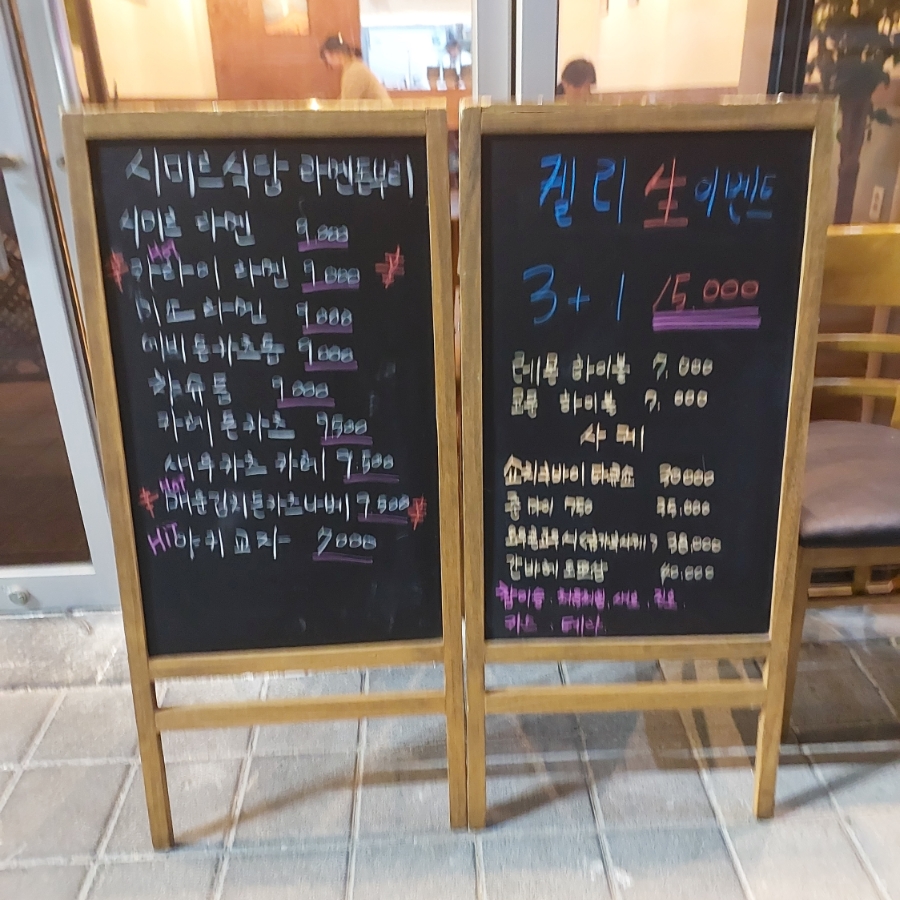 시미르식당 라멘돈부리
시미르 라멘 9.000
HOT
카라이 라멘 9.000
미소 라멘 9.000
에비돈카츠동 9.000
차슈동 9.000
카레돈카츠 9.500
새우카츠 카레 9.500
HOT
매운김치돈카츠나베 9.500
HIT 야키교자 7.000
켈리 生 이벤트
3+1 15.000
레몬 하이볼 7.000
하이볼 7.000
사케
750
간바레오또상
참이슬
카스. 테라